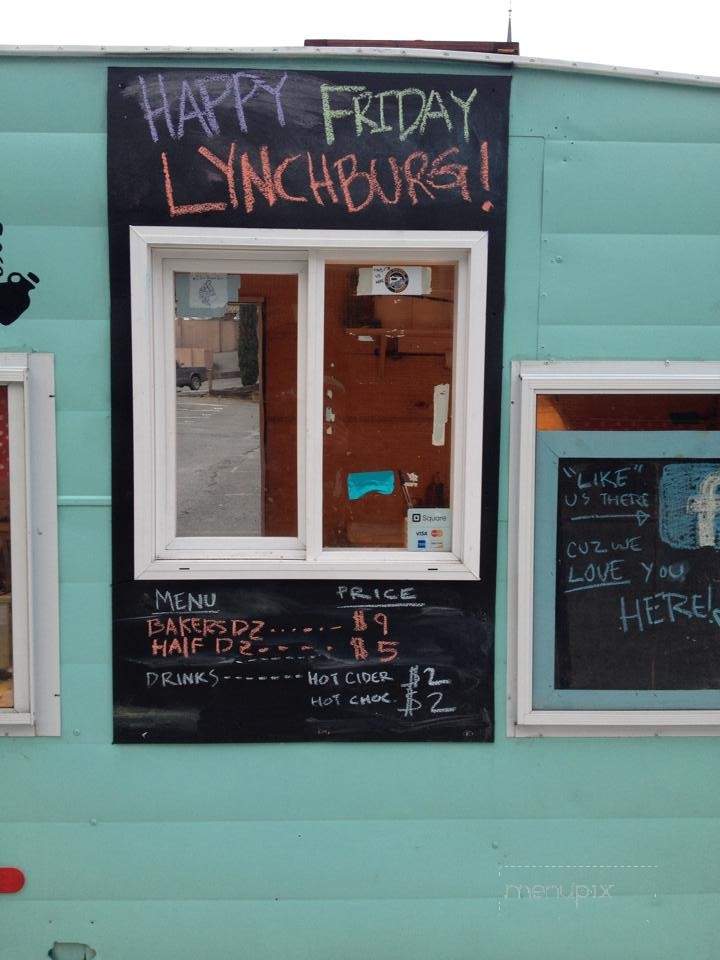 HAPPY FRIDAY
LYNCHBURG!
Square
VISA
"LIKE"
US THERE
CUZ WE
LOVE YOU
HERE!
MENU PRICE
BAKERS DZ...... $9
HALF DZ..... $5
DRINKS-------- HOT CIDER $2
HOT CHOC. $2
menupix